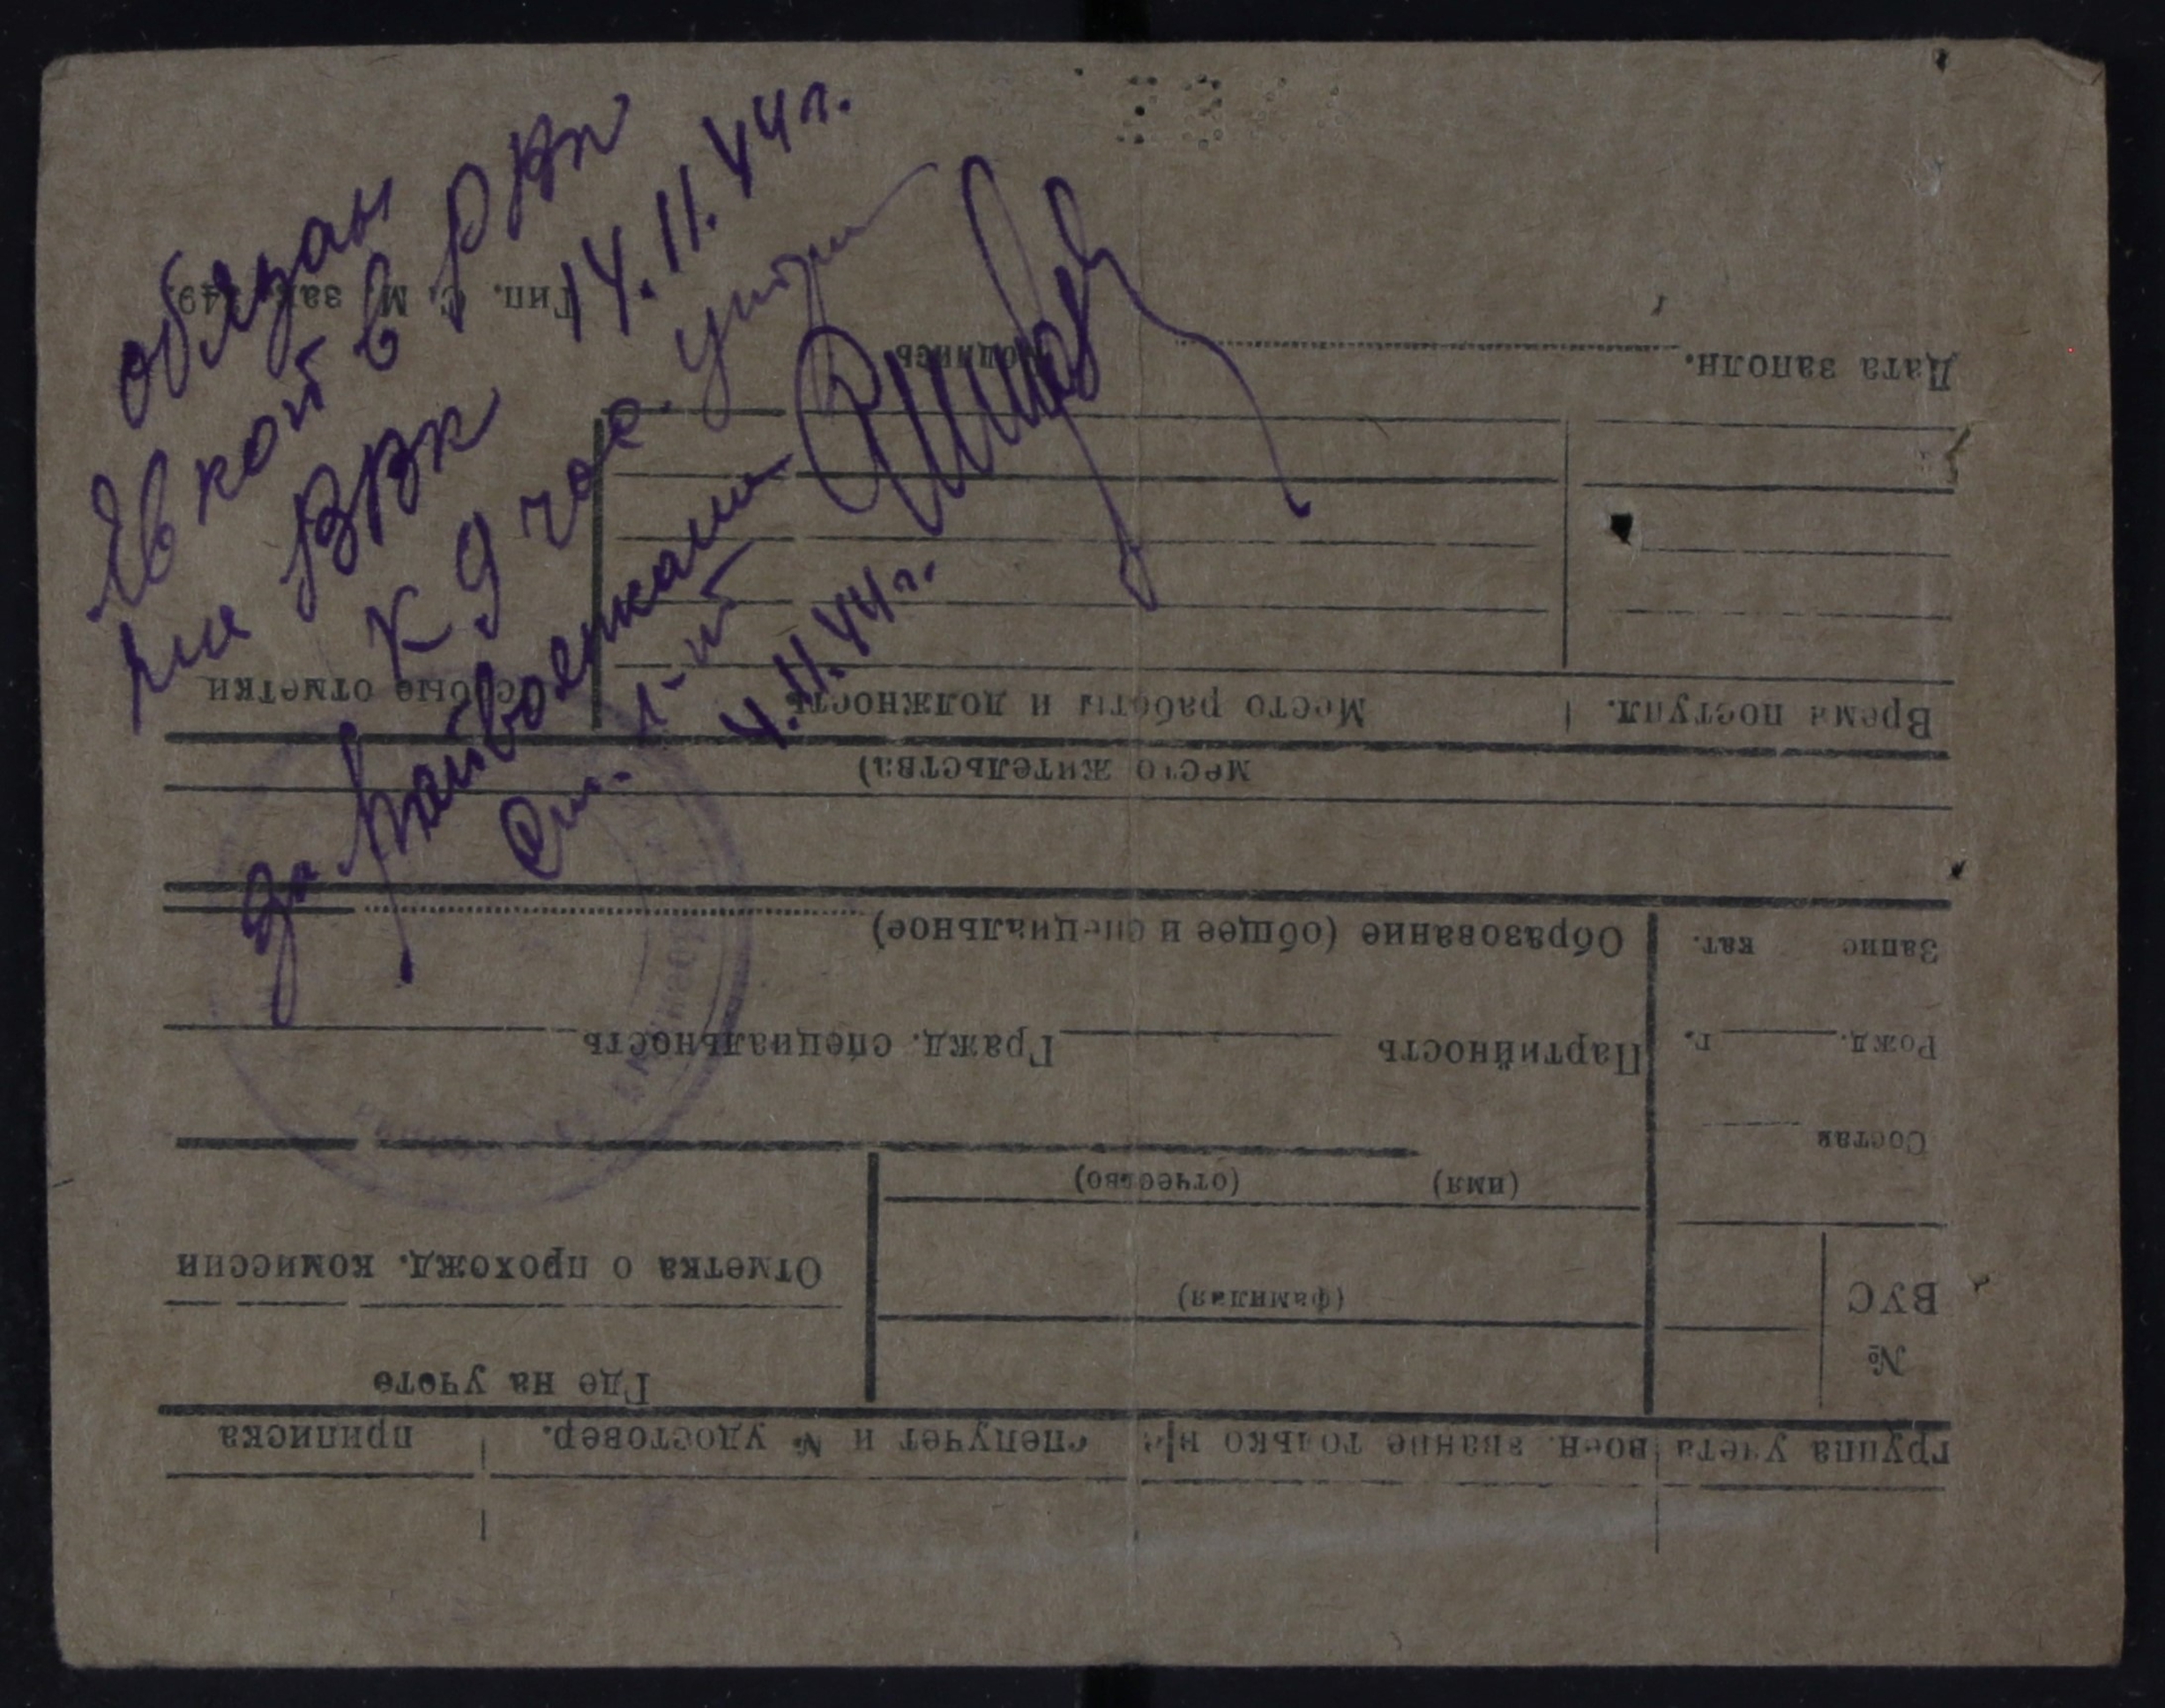 обязан
в РВК
на ВВК 14.11.44 г.
К 9 час. утра
За Райвоенкома
Ст. л-нт
4.11.44 г.
группа учета воен. звание только н/с спецучет и № удостовер. приписка
№
ВУС
Где на учете
(фамилия)
Отметка о прохожд. комиссии
(имя) (отчество)
Состав
Рожд. г. Партийность Гражд. специальность
Запис кат. Образование (общее и специальное)
место жительства)
Время поступл. Место работы и должность особые отметки
Дата заполн. подпись
Тип. С. М. зак.